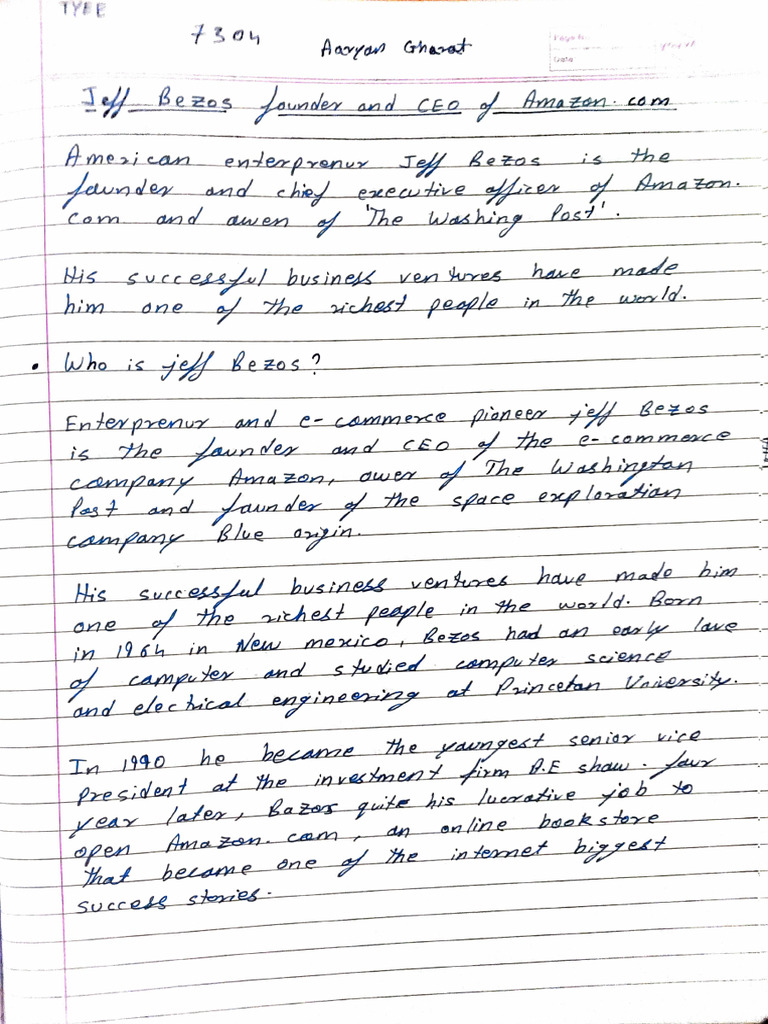 TYEE
7304
Aaryan Gharat
Page No.
Date
Jeff Bezos founder and CEO of Amazon.com
American enterprenur Jeff Bezos is the
founder and chief executive officer of Amazon.
com and owen of 'The Washing Post'.
His successful business ventures have made
him one of the richest people in the world.
• Who is jeff Bezos?
Enterprenur and e-commerce pioneer jeff Bezos
is the founder and CEO of the e-commerce
company Amazon, ower of The Washington
Post and founder of the space exploration
company Blue origin.
His successful business ventures have made him
one of the richest people in the world. Born
in 1964 in New mexico, Bezos had an early love
of computer and studied computer science
and electrical engineering at Princetan University.
In 1990 he became the youngest senior vice
president at the investment firm D.E shaw. four
year later, Bazos quite his lucrative job to
open Amazon.com, an online bookstore
that became one of the internet biggest
success stories.